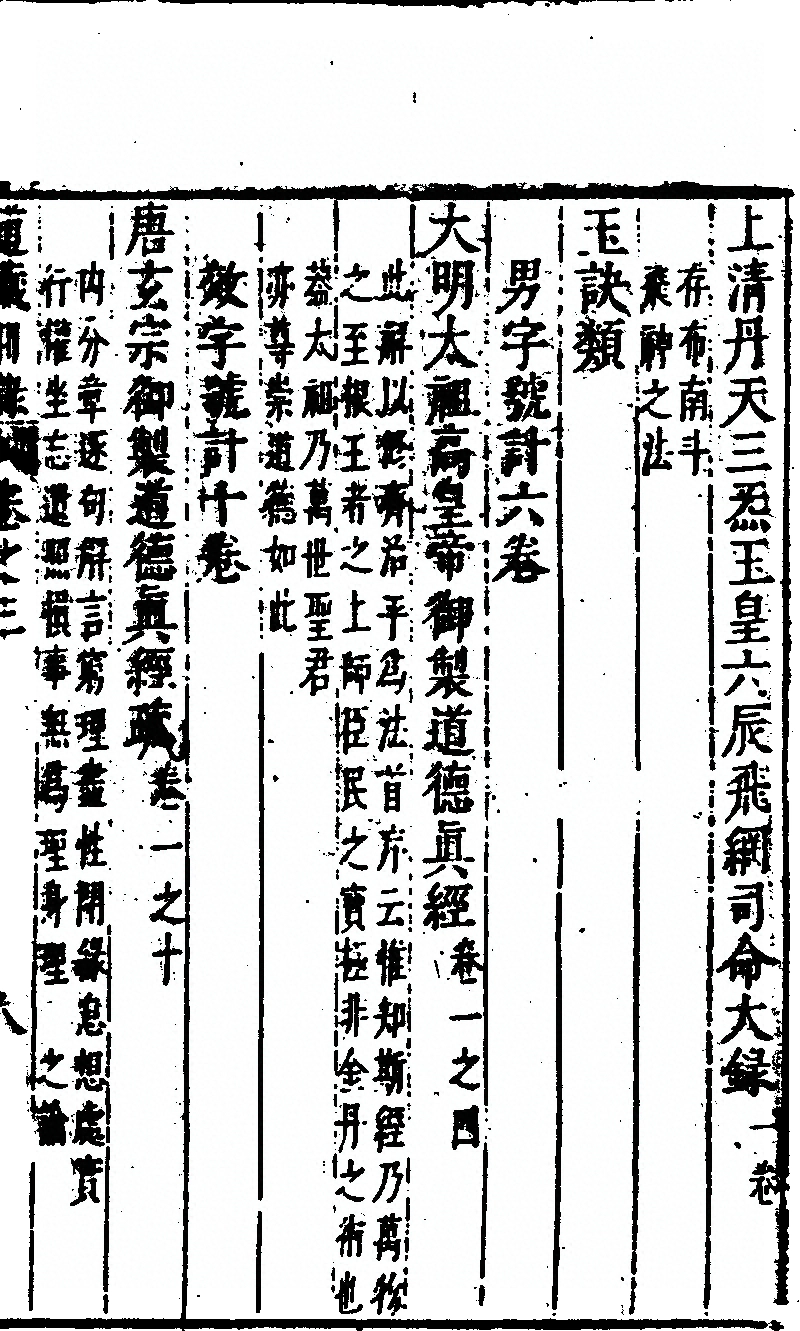 上清丹天三炁玉皇六辰飛綱司命大錄一卷
存布南斗
乘神之法
玉訣類
男字號計六卷
大明太祖高皇帝御製道德眞經卷一之四
此解以修齊治平爲法首序云惟知斯經乃萬物
之至根王者之上師臣民之寶極非金丹之術也
蓋太祖乃萬世聖君
亦尊崇道德如此
效字號計十卷
唐玄宗御製道德眞經疏卷一之十
內分章逐句解言窮理盡性閉緣息想處實
行權坐忘遺照損事無爲聖身理之論
之三
八